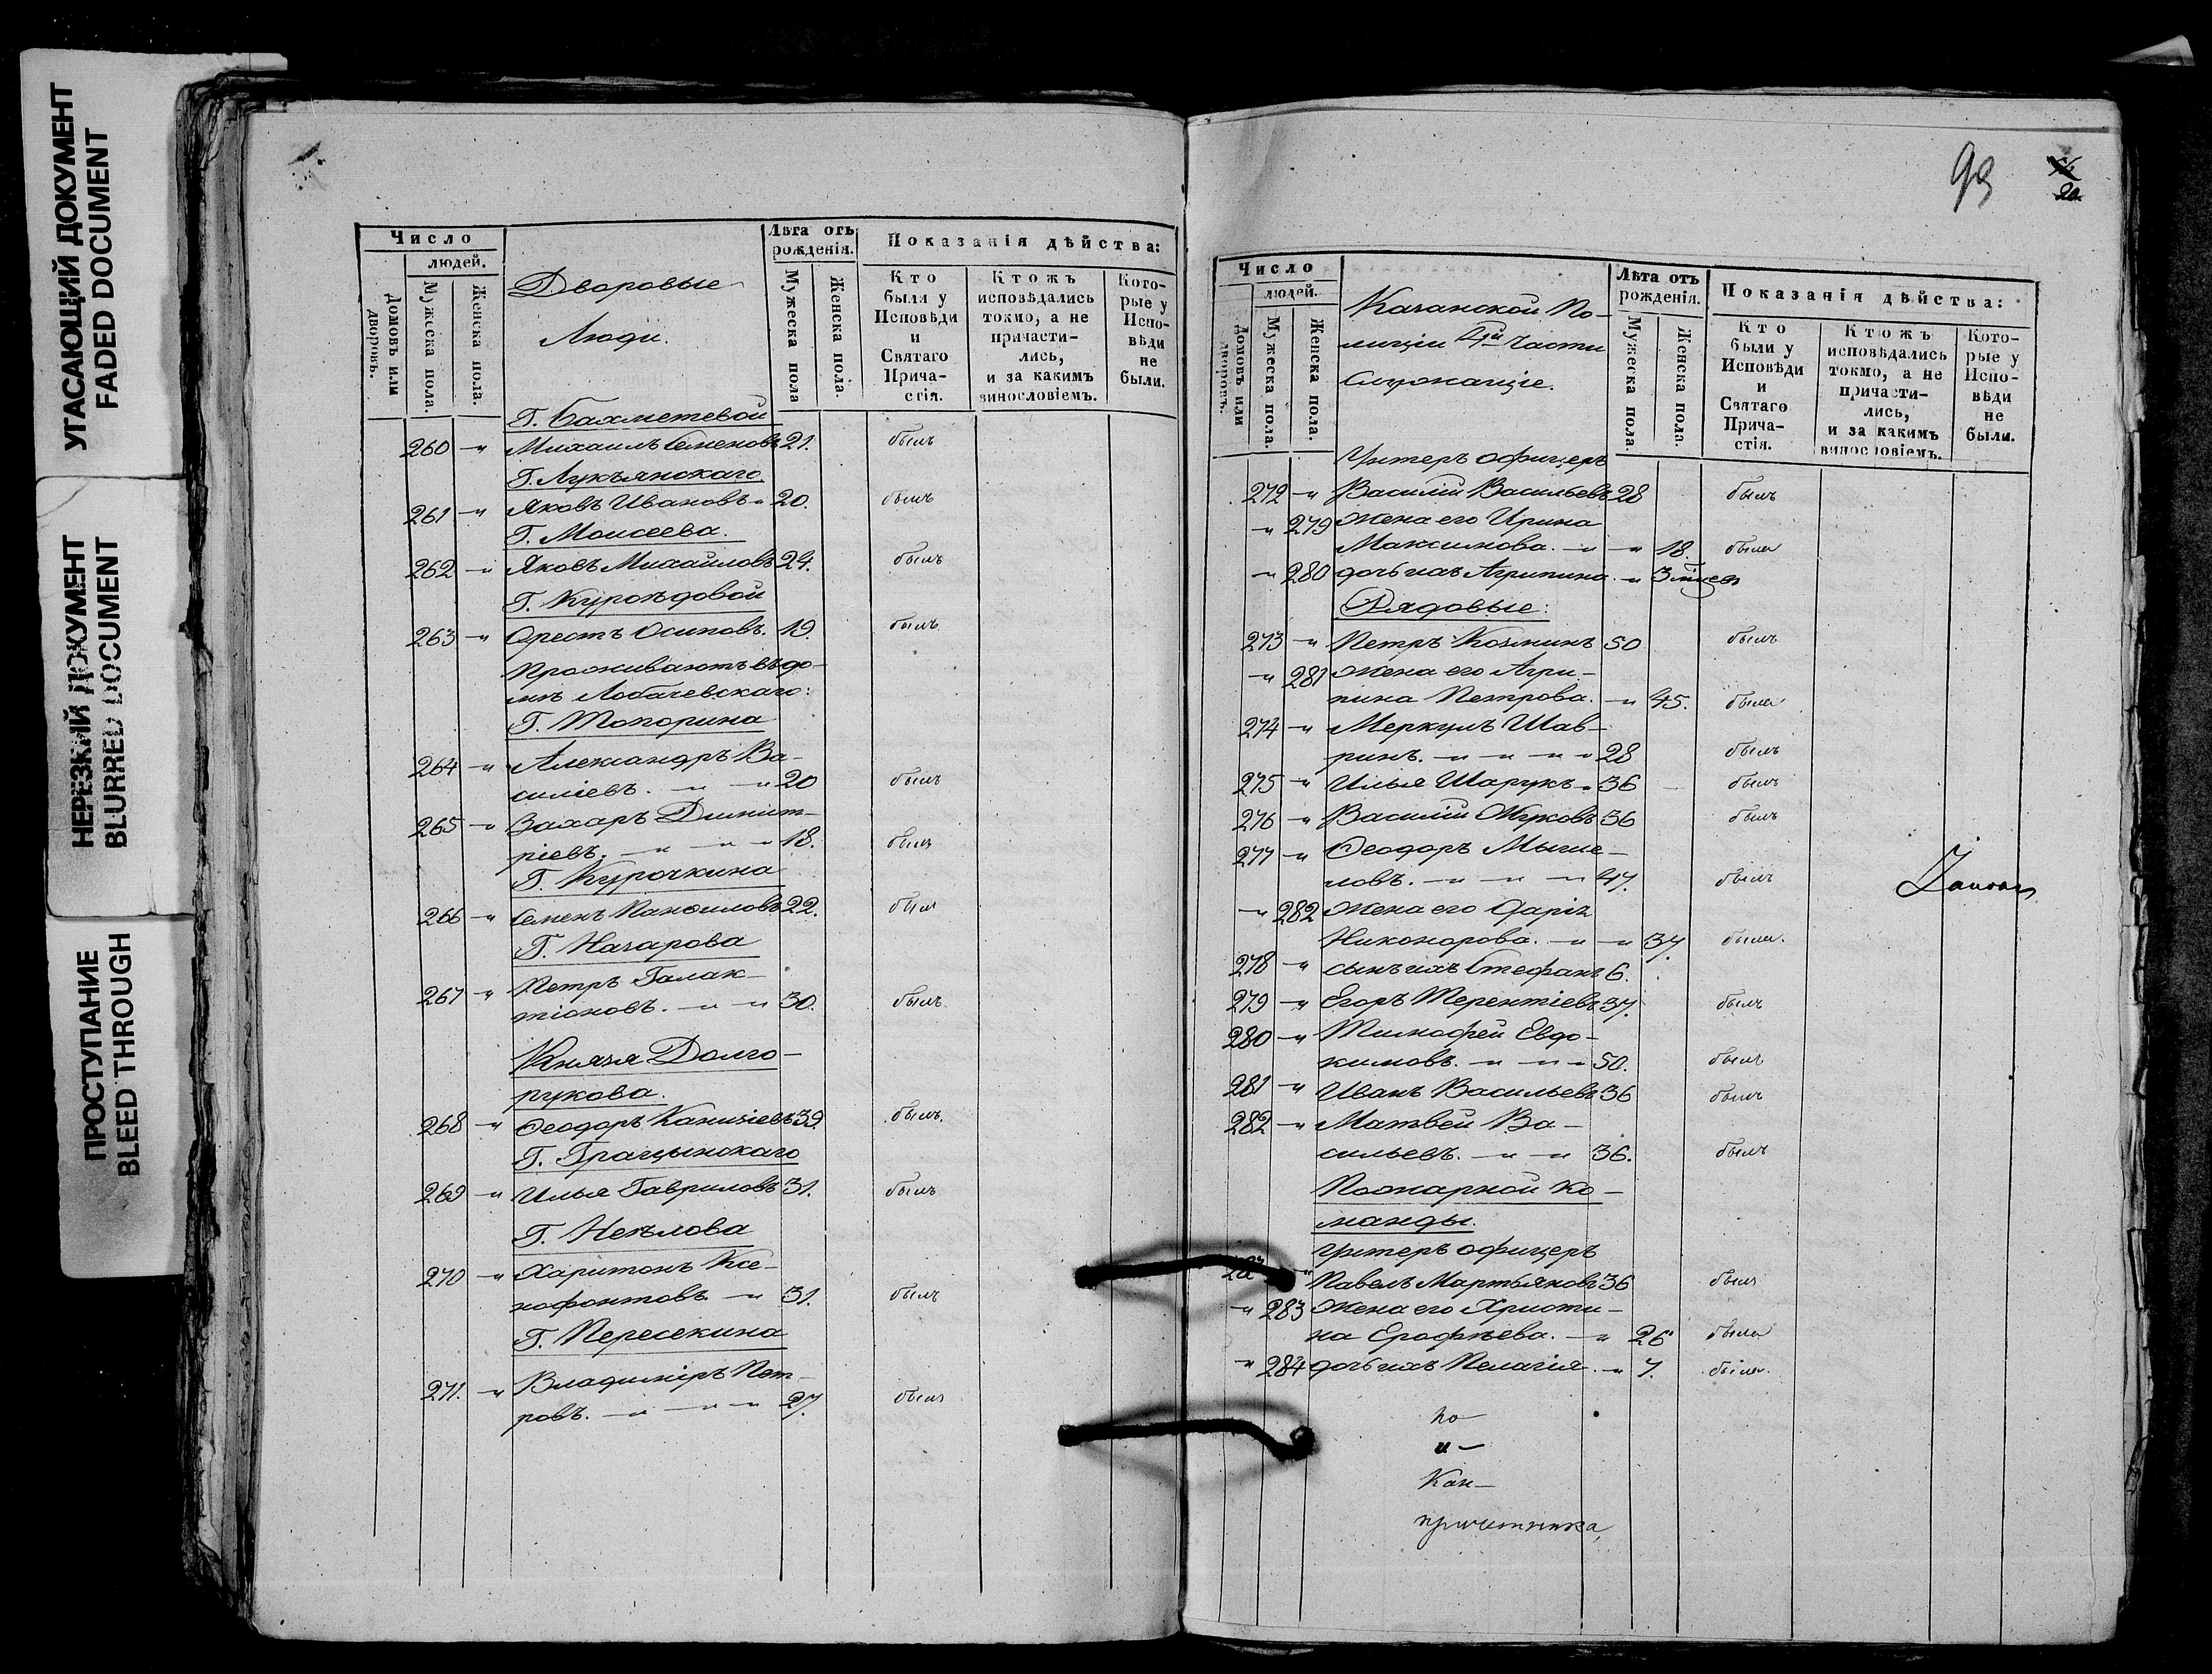 УГАСАЮЩИЙ ДОКУМЕНТ
FADED DOCUMENT
НЕРЕЗКИЙ ДОКУМЕНТ
BLURRED DOCUMENT
ПРОСТУПАНИЕ
BLEED THROUGH
Число
людей.
Домовъ или дворовъ.
Мужеска пола.
Женска пола.
Дворовые
Люди.
Лѣта отъ рожденія.
Мужеска пола
Женска пола.
Показанія дѣйства:
Кто были у Исповѣди и Святаго Прича-стія.
Ктожъ исповѣдались токмо, а не причасти-лись, и за какимъ винословіемъ.
Кото-рые у Испо-вѣди не были.
Г. Бахметевой
260 " Михаилъ Семеновъ 21. былъ
Г. Лукъянскаго
261 " Яковъ Ивановъ " 20. былъ
Г. Моисеева.
262 " Яковъ Михайловъ 24. былъ
Г. Куроѣдовой
263 " Орестъ Осиповъ. 19. былъ
Проживаютъ въ до-
мѣ Лобачевскаго:
Г. Топорина
264 " Александръ Ва-
силіевъ. " " 20 былъ
265 " Захаръ Димит-
ріевъ. " " " 18. былъ
Г. Курочкина
266 " Семенъ Панфиловъ 22. былъ
Г. Начарова
267 " Петръ Галак-
тіоновъ. " " 30. былъ
Князя Долго-
рукова.
268 " Ѳеодоръ 39. былъ.
Г. Грацынскаго
269 " Илья Гавриловъ 31. былъ
Г. Неѣлова
270 " Харитонъ Ксе-
нофонтовъ. " 31. былъ
Г. Пересекина
271. " Владиміръ Пет-
ровъ. " " " 27. былъ
93
20
Число
людей.
Домовъ или дворовъ.
Мужеска пола.
Женска пола.
Казанской По-
лиціи 4й Части
Служащіе.
Лѣта отъ рожденія.
Мужеска пола
Женска пола.
Показанія дѣйства:
Кто были у Исповѣди и Святаго Прича-стія.
Ктожъ исповѣдались токмо, а не причасти-лись, и за какимъ винословіемъ.
Кото-рые у Испо-вѣди не были.
Унтеръ офицеръ
272 " Василій Васильевъ 28 былъ
" 279 Жена его Ирина
Максимова. " " 18. была
" 280 дочь ихъ Агрипина. " 3 мѣсяц
Рядовые:
273 " Петръ Козминъ 50 былъ
" 281 Жена его Агри-
пина Петрова. " 45. была
274 " Меркулъ Шав-
ринъ. " " " " 28 былъ
275 " Илья Шарукъ " 36 былъ
276 " Василій Жуковъ 36 былъ
277 " Ѳеодоръ Мыше-
ловъ. " " " 47. былъ
" 282 Жена его Дарія
Никонорова. " " 37. была.
278 " сынъ ихъ Стефанъ 6.
279 " Егоръ Терентіевъ 37. былъ
280 " Тимофей Евдо-
кимовъ. " " " 50. былъ
281 " Иванъ Васильевъ 36 былъ
282 " Матвей Ва-
сильевъ. " " 36. былъ
Пожарной Ко-
манды.
Унтеръ офицеръ
" Павелъ Мартьяновъ 36 былъ
" 283 Жена его Христи-
на Ерофѣева. " " 26 была
" 284 дочь ихъ Пелагія. " 7. была.
но
и
Кан-